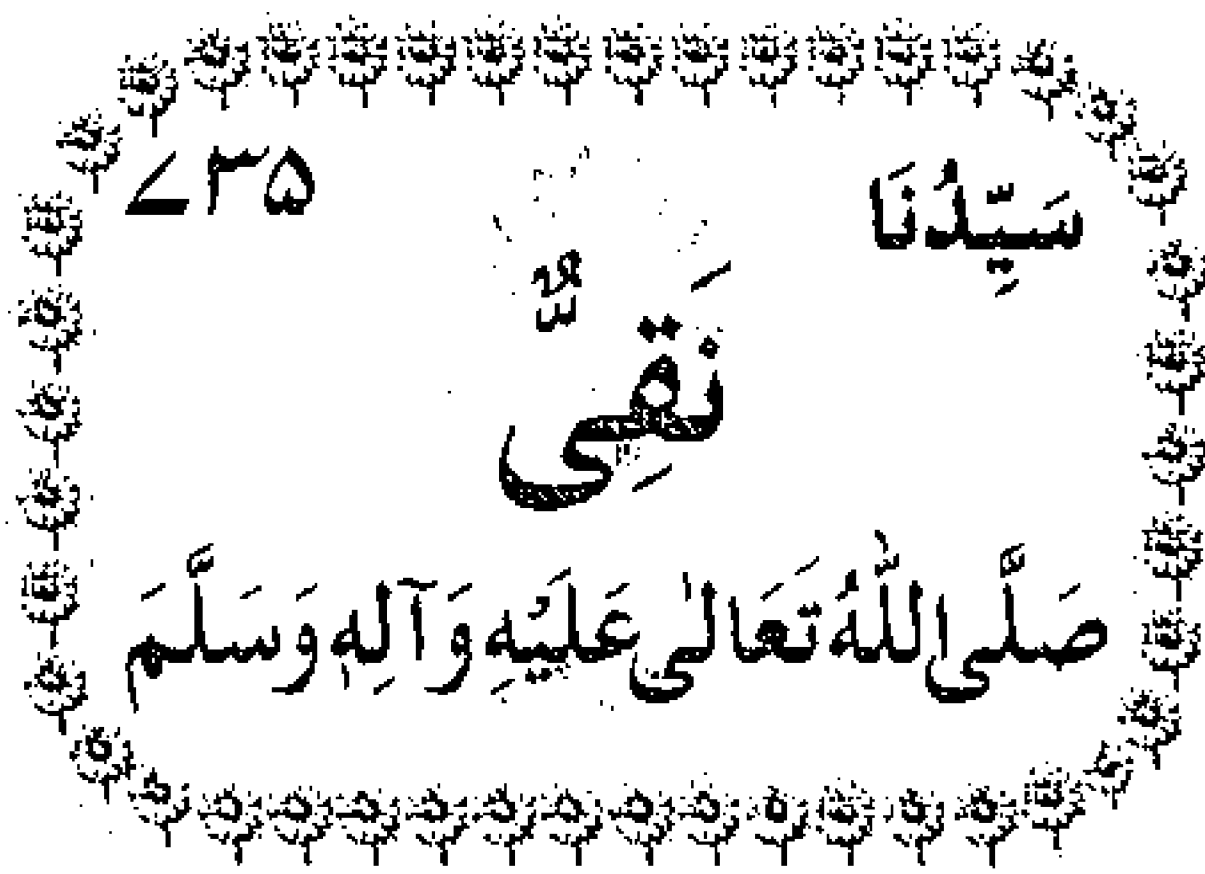 سَيِّدُنَا ۷۳۵
نَقِیٌّ
صَلَّی اللّٰهُ تَعَالٰی عَلَيْهِ وَآلِهٖ وَسَلَّمَ